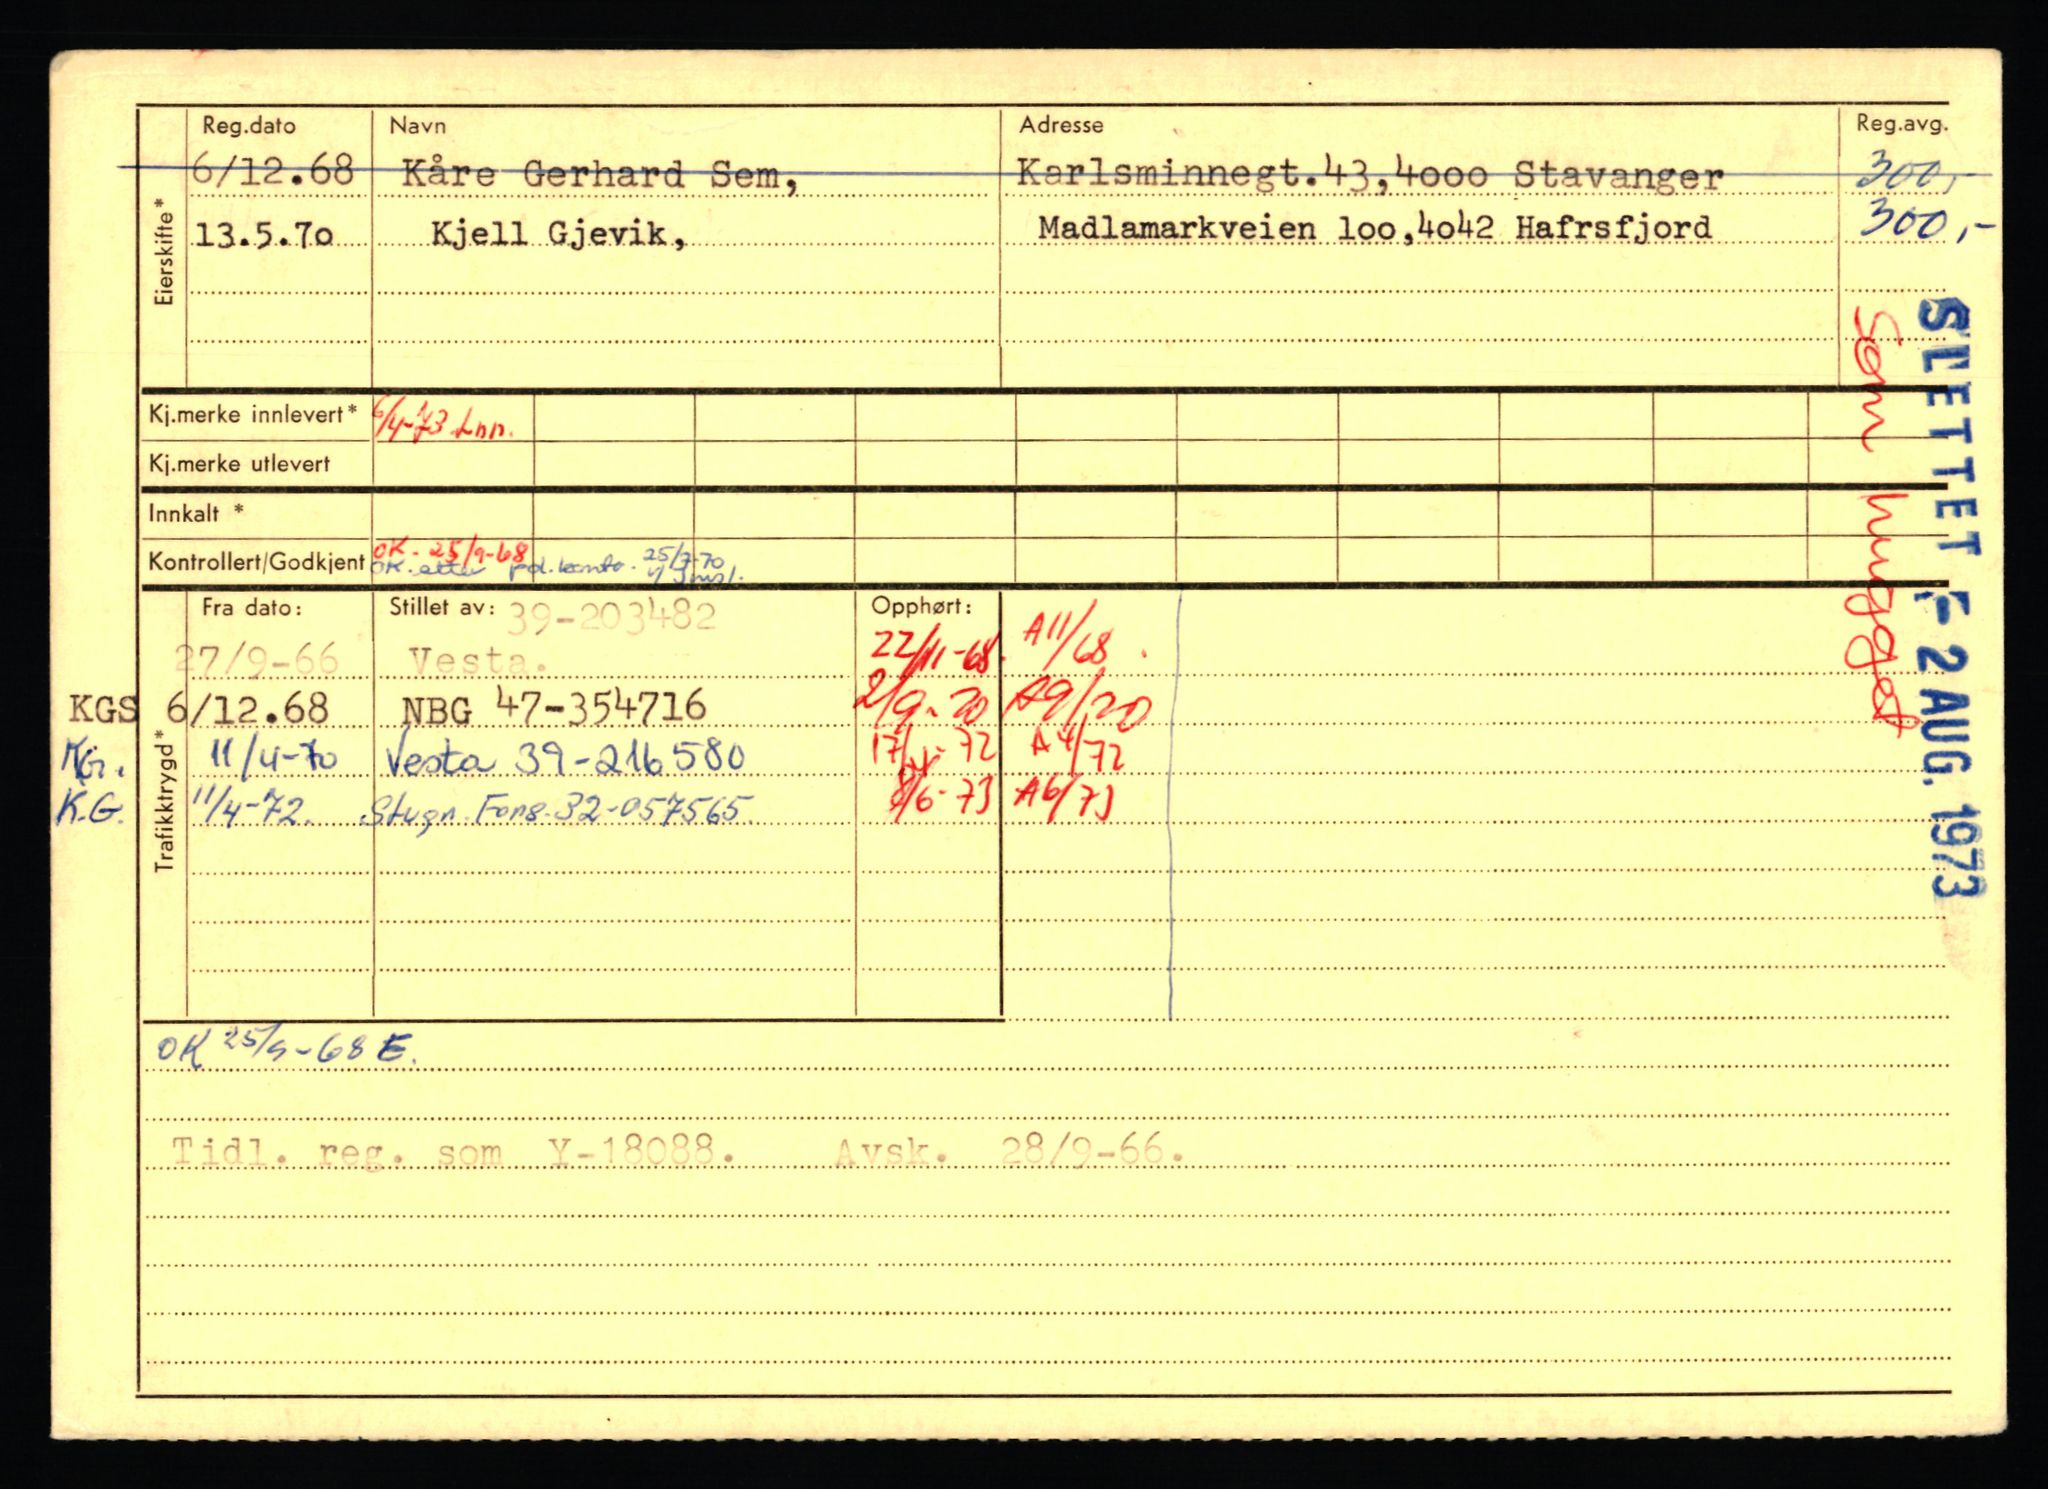 Reg.dato Navn Adresse Reg.avg.
6/12.68 Kåre Gerhard Sem, Karlsminnegt.43,4ooo Stavanger 300,-
13.5.7o Kjell Gjevik, Madlamarkveien loo,4o42 Hafrsfjord 300,-
Eierskifte*
Kj.merke innlevert* 6/4-73
Kj.merke utlevert
Innkalt *
Kontrollert/Godkjent OK- 25/9-68
OK. etter 25/7-70
Fra dato: Stillet av: 39-203482 Opphørt:
27/9-66 Vesta. 22/11-68. A11/68.
KGS 6/12.68 NBG 47-354716 2/9-70 A9/70
KG. 11/4-70 Vesta 39-216580 17/4-72 A4/72
K.G. 11/4-72. 32-057565. 8/6-73 A6/73
Trafikktrygd*
OK 25/9-68 E.
Tidl. reg. som Y-18088. Avsk. 28/9-66.
SLETTET - 2 AUG. 1973
Som hugget